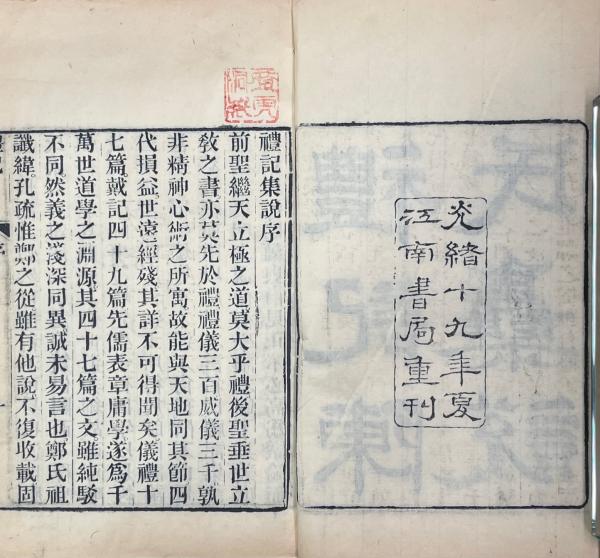 光緒十九年夏
江南書局重刊
禮記集說序
前聖繼天立極之道莫大乎禮後聖垂世立
敎之書亦莫先於禮禮儀三百威儀三千孰
非精神心術之所寓故能與天地同其節四
代損益世遠經殘其詳不可得聞矣儀禮十
七篇戴記四十九篇先儒表章庸學遂爲千
萬世道學之淵源其四十七篇之文雖純駁
不同然義之淺深同異誠未易言也鄭氏祖
讖緯孔疏惟鄭之從雖有他說不復收載固
序